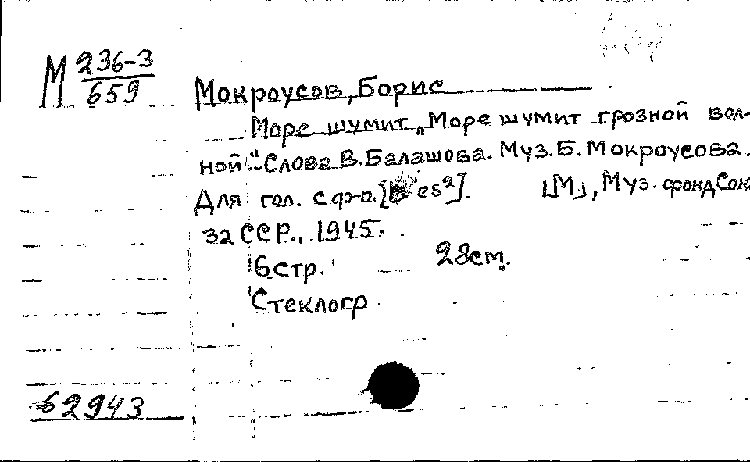 М 236-3
659
Мокроусов, Борис
Море шумит „Море шумит грозной вол-
ной“ Слова В. Балашова. Муз. Б. Мокроусова.
Для гол. с ф-п. es²]. [М], Муз. фонд Сою
за ССР., 1945.
6 стр. 28 см.
Стеклогр.
62943